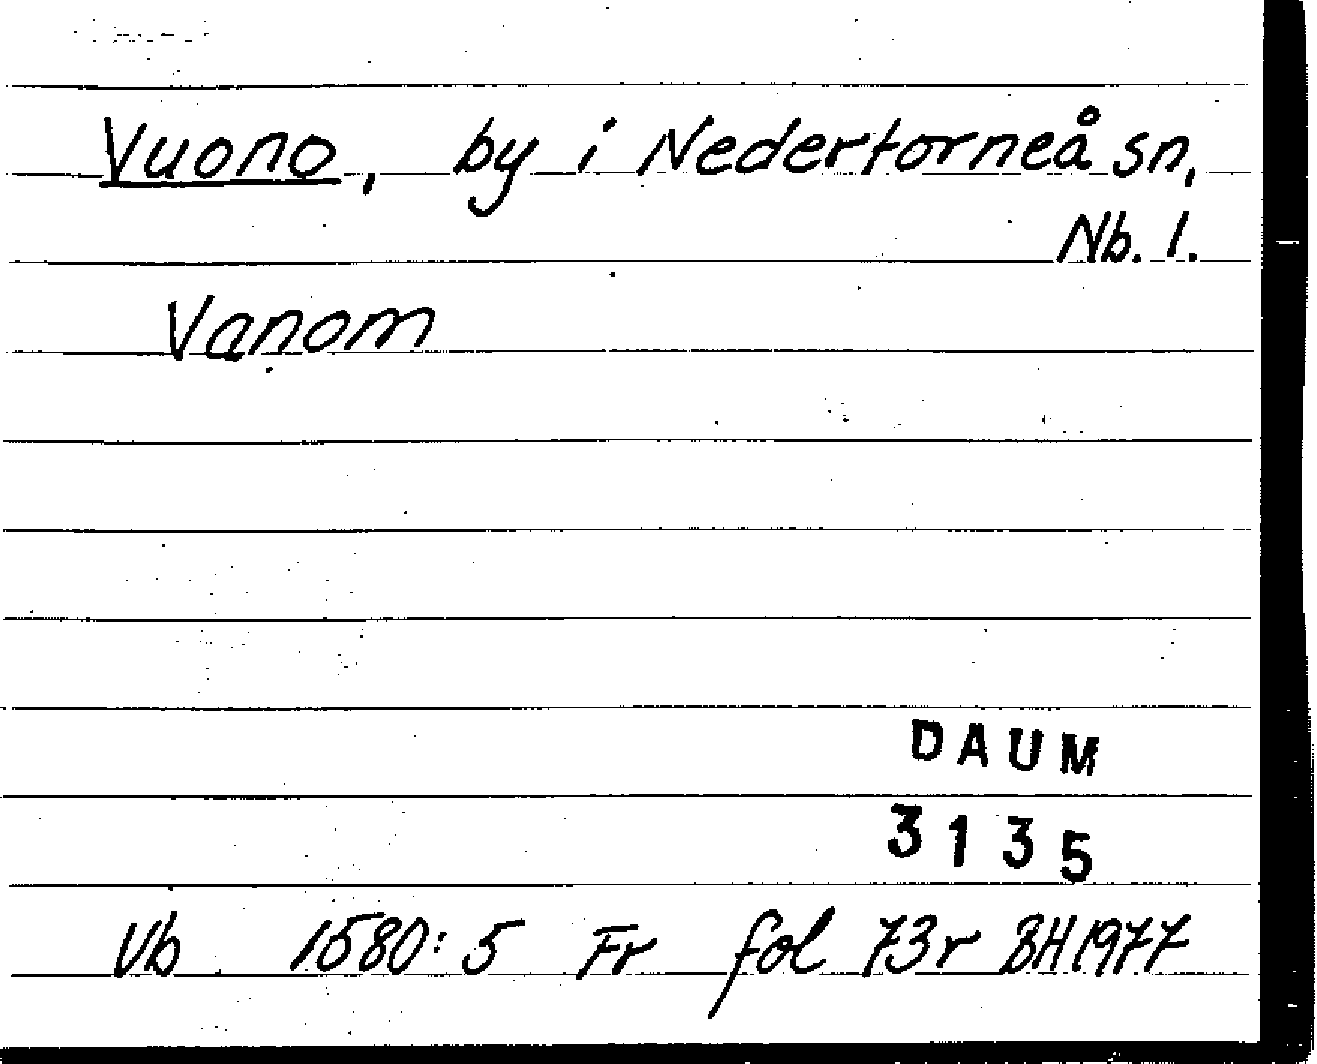 Vuono, by i Nedertorneå sn,
Nb. l.
Vanom
DAUM
3135
Vb. 1580:5 Fr fol 73r BH1977